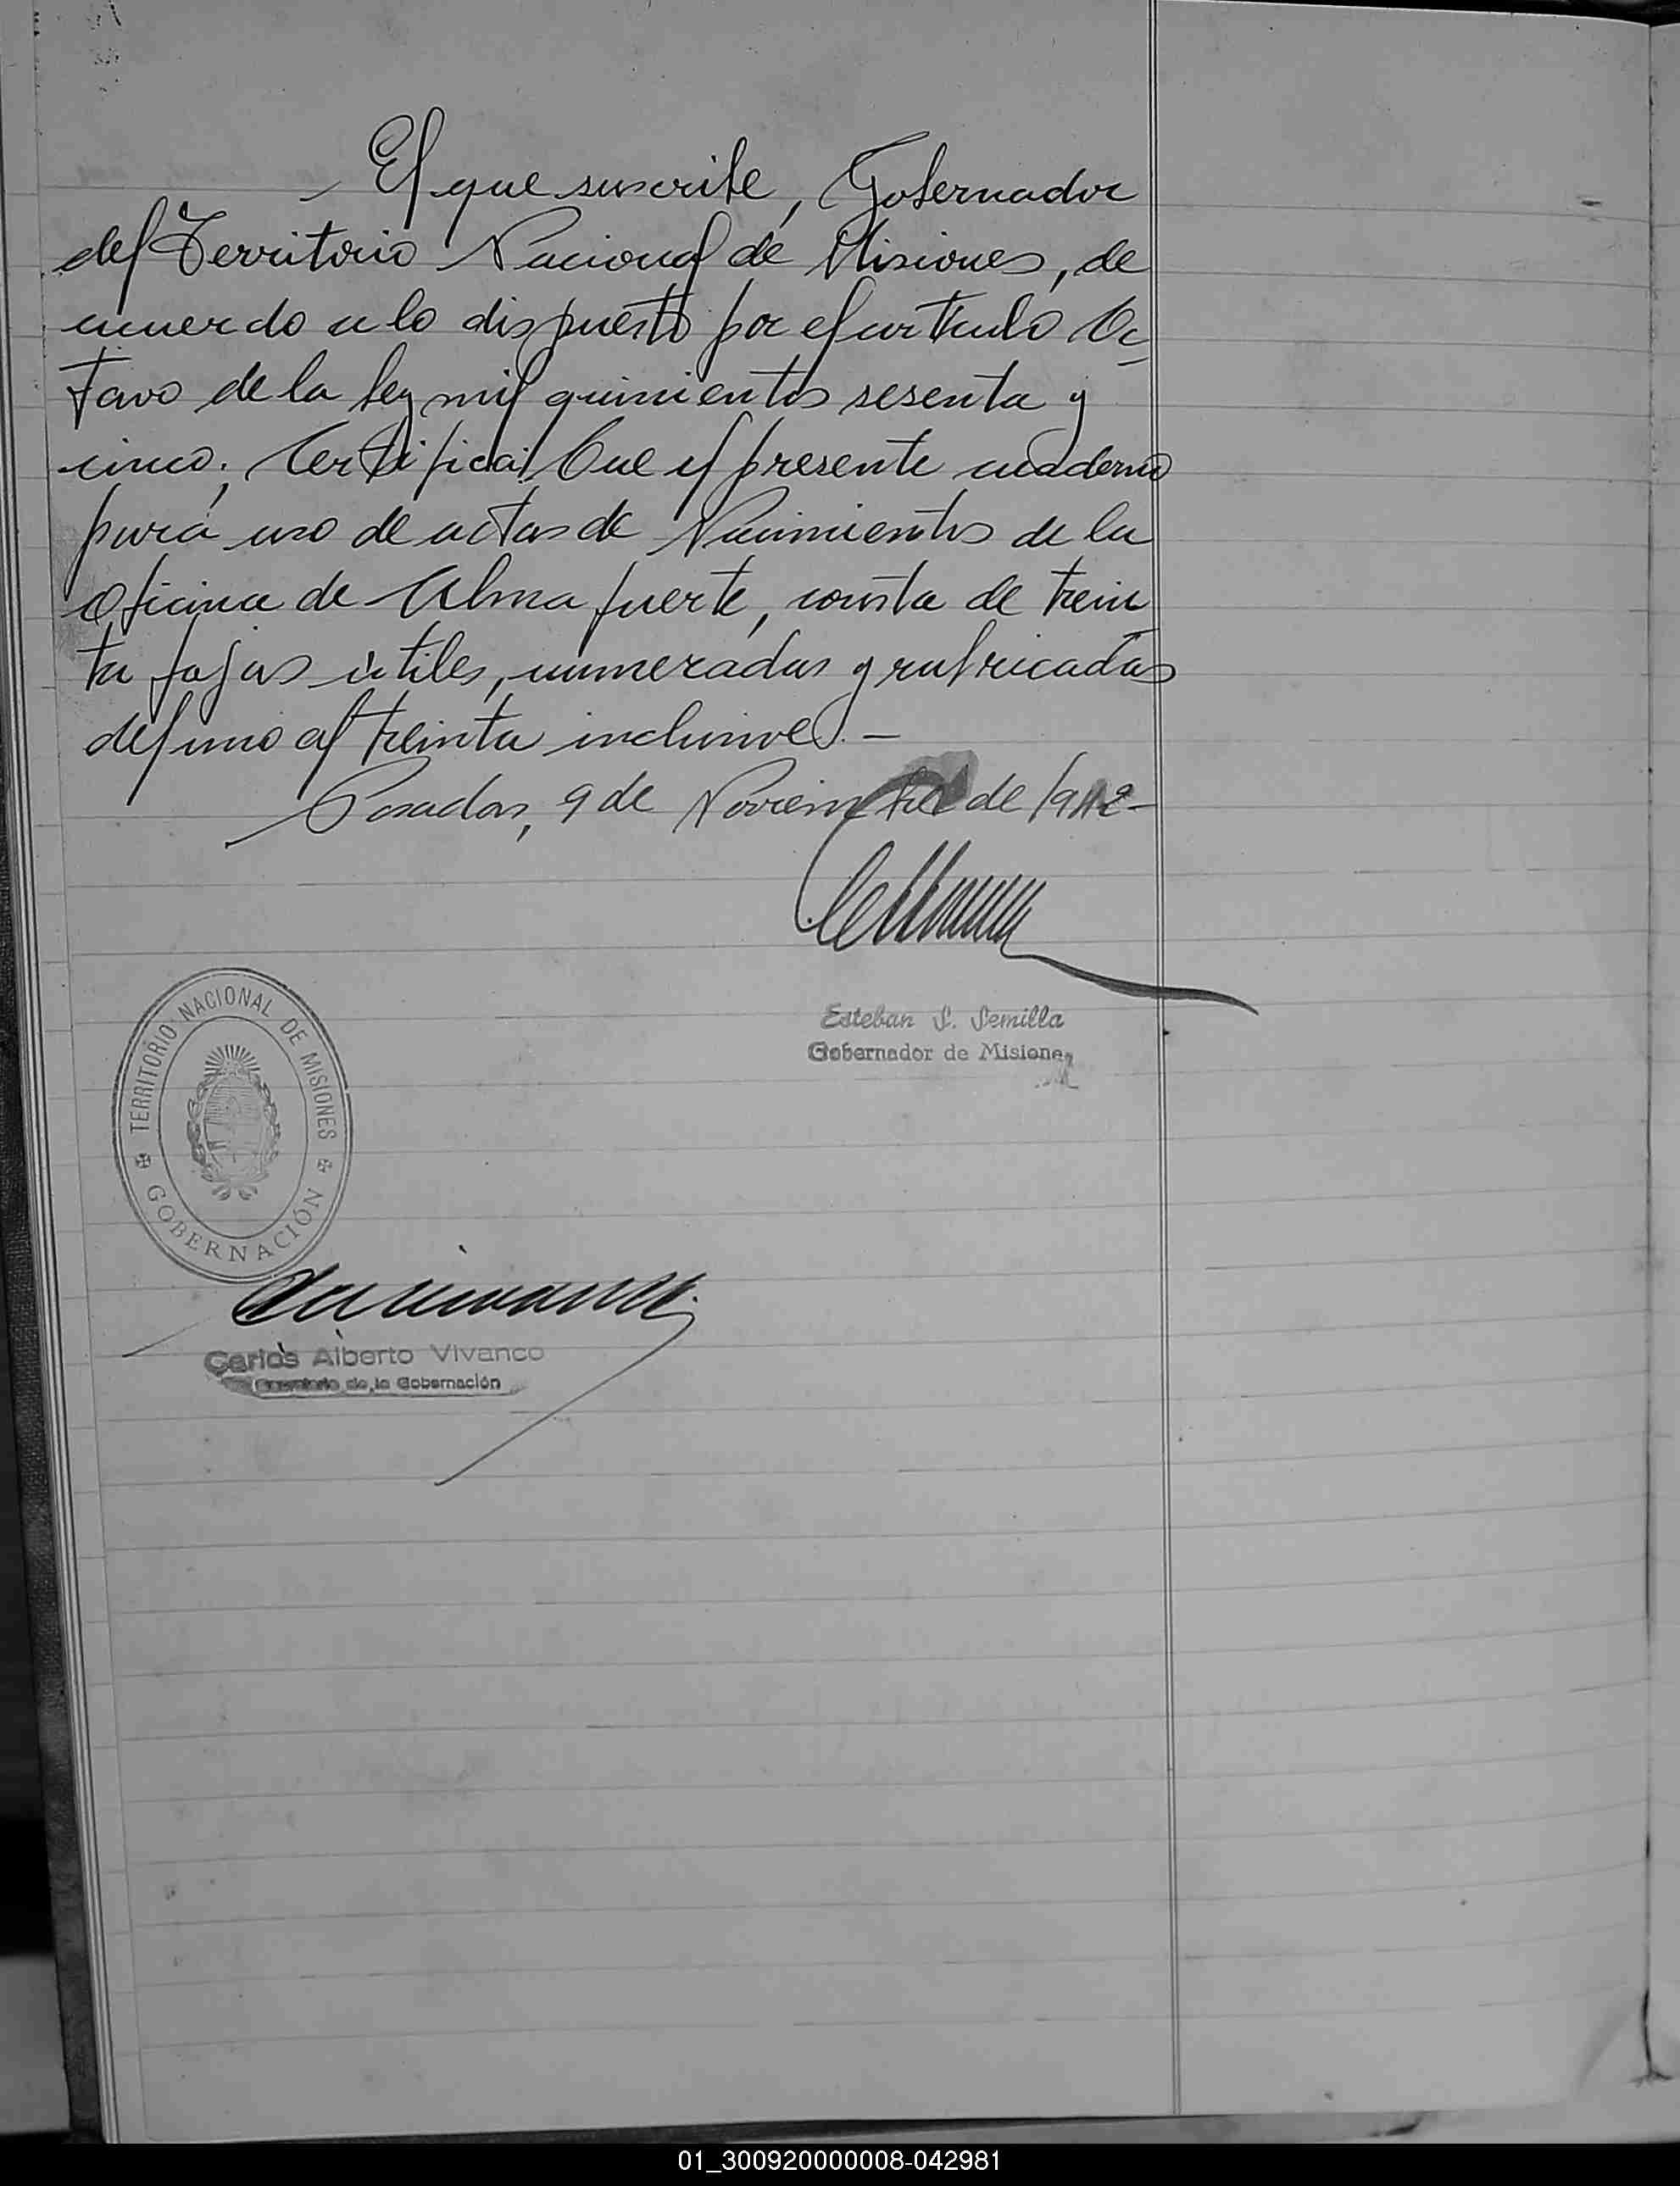 El que suscribe, Gobernador
del Territorio Nacional de Misiones, de
acuerdo a lo dispuesto por el artículo Oc_
tavo de la Ley mil quinientos sesenta y
cinco; Certifica: Que el presente cuaderno
para uso de actas de Nacimientos de la
Oficina de Alma fuerte, consta de trein_
ta fojas útiles, numeradas y rubricadas
del uno al treinta inclusive. —
Posadas, 9 de Noviembre de
TERRITORIO NACIONAL DE MISIONES
GOBERNACIÓN
Esteban S. Semilla
Gobernador de Misiones
Carlos Alberto Vivanco
Secretario de la Gobernación
01_300920000008-042981